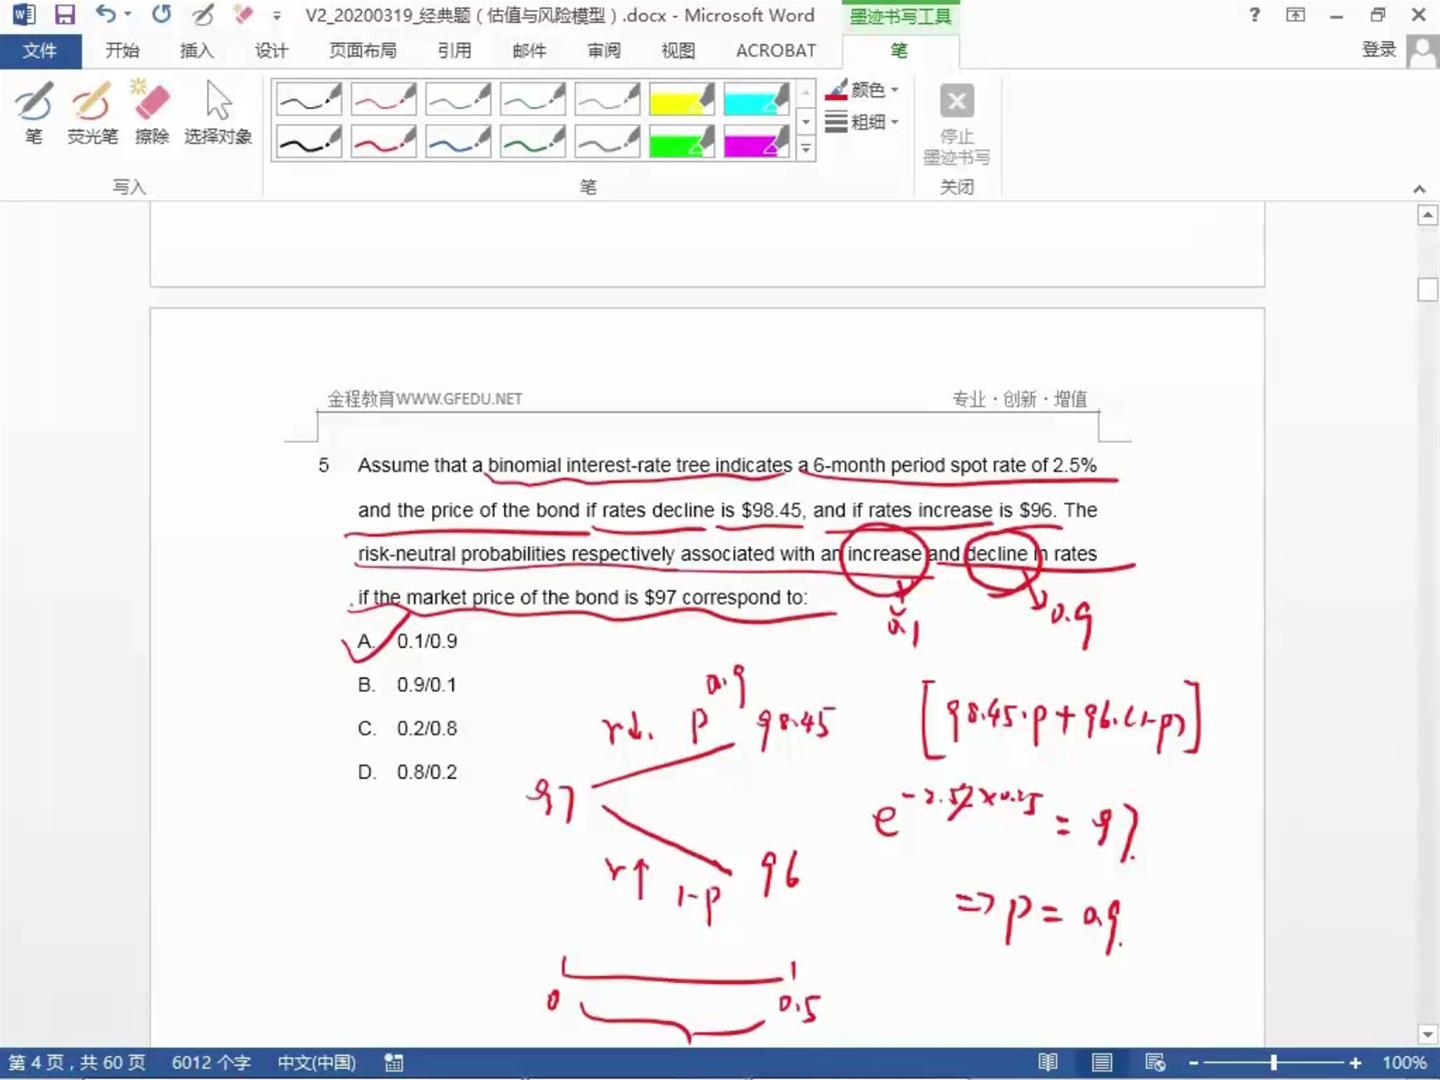 V2_20200319_经典题（估值与风险模型）.docx - Microsoft Word
墨迹书写工具
文件 开始 插入 设计 页面布局 引用 邮件 审阅 视图 ACROBAT 笔 登录
笔 荧光笔 擦除 选择对象
颜色
粗细
停止
墨迹书写
写入 笔 关闭
金程教育WWW.GFEDU.NET 专业·创新·增值
5 Assume that a binomial interest-rate tree indicates a 6-month period spot rate of 2.5%
and the price of the bond if rates decline is $98.45, and if rates increase is $96. The
risk-neutral probabilities respectively associated with an increase and decline in rates
if the market price of the bond is $97 correspond to:
0.1
0.9
A. 0.1/0.9
B. 0.9/0.1
C. 0.2/0.8
D. 0.8/0.2
0.9
r↓. p 98.45
97
r↑ 1-p 96
[98.45·p+96·(1-p)]
= 97.
=> p = 0.9.
0 0.5
第 4 页，共 60 页 6012 个字 中文(中国) 100%